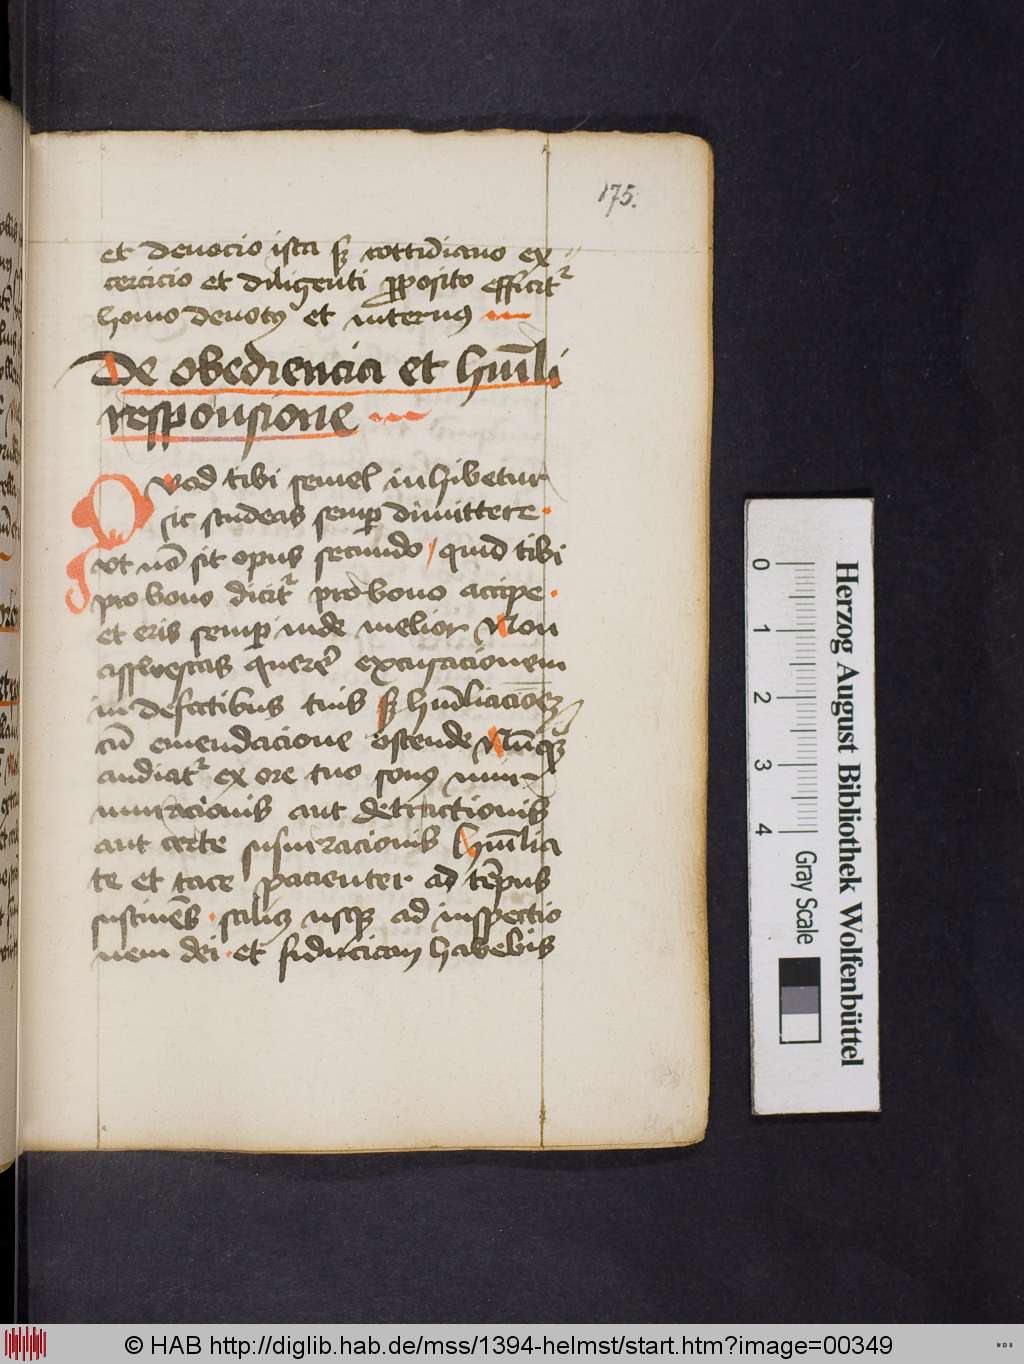 175.
et deuocio ista sꝫ cottidiano ex-
cercicio et diligenti ꝓposito efficit᷑
homo deuotꝰ et internꝰ
De obediencia et hūili
responsione
Quod tibi semel inhibetur
sic studeas semꝑ dimittere.
vt nō sit opus secundo / quid tibi
pro bono dicit᷑ pro bono accipe.
et eris semꝑ inde melior Non
asswescas querē excusacionem
in defectibus tuis sꝫ hūiliacionē
cū emendacione ostende Nūqꝫ
audiat᷑ ex ore tuo sonꝰ mur-
muracionis aut detractionis
aut certe susurracionis Hūilia
te et tace pacienter ad tēpus
sustinēs. usqꝫ ad inspectio
nem dei. et fiduciam habebis
Herzog August Bibliothek Wolfenbüttel
0 1 2 3 4
Gray Scale
© HAB http://diglib.hab.de/mss/1394-helmst/start.htm?image=00349